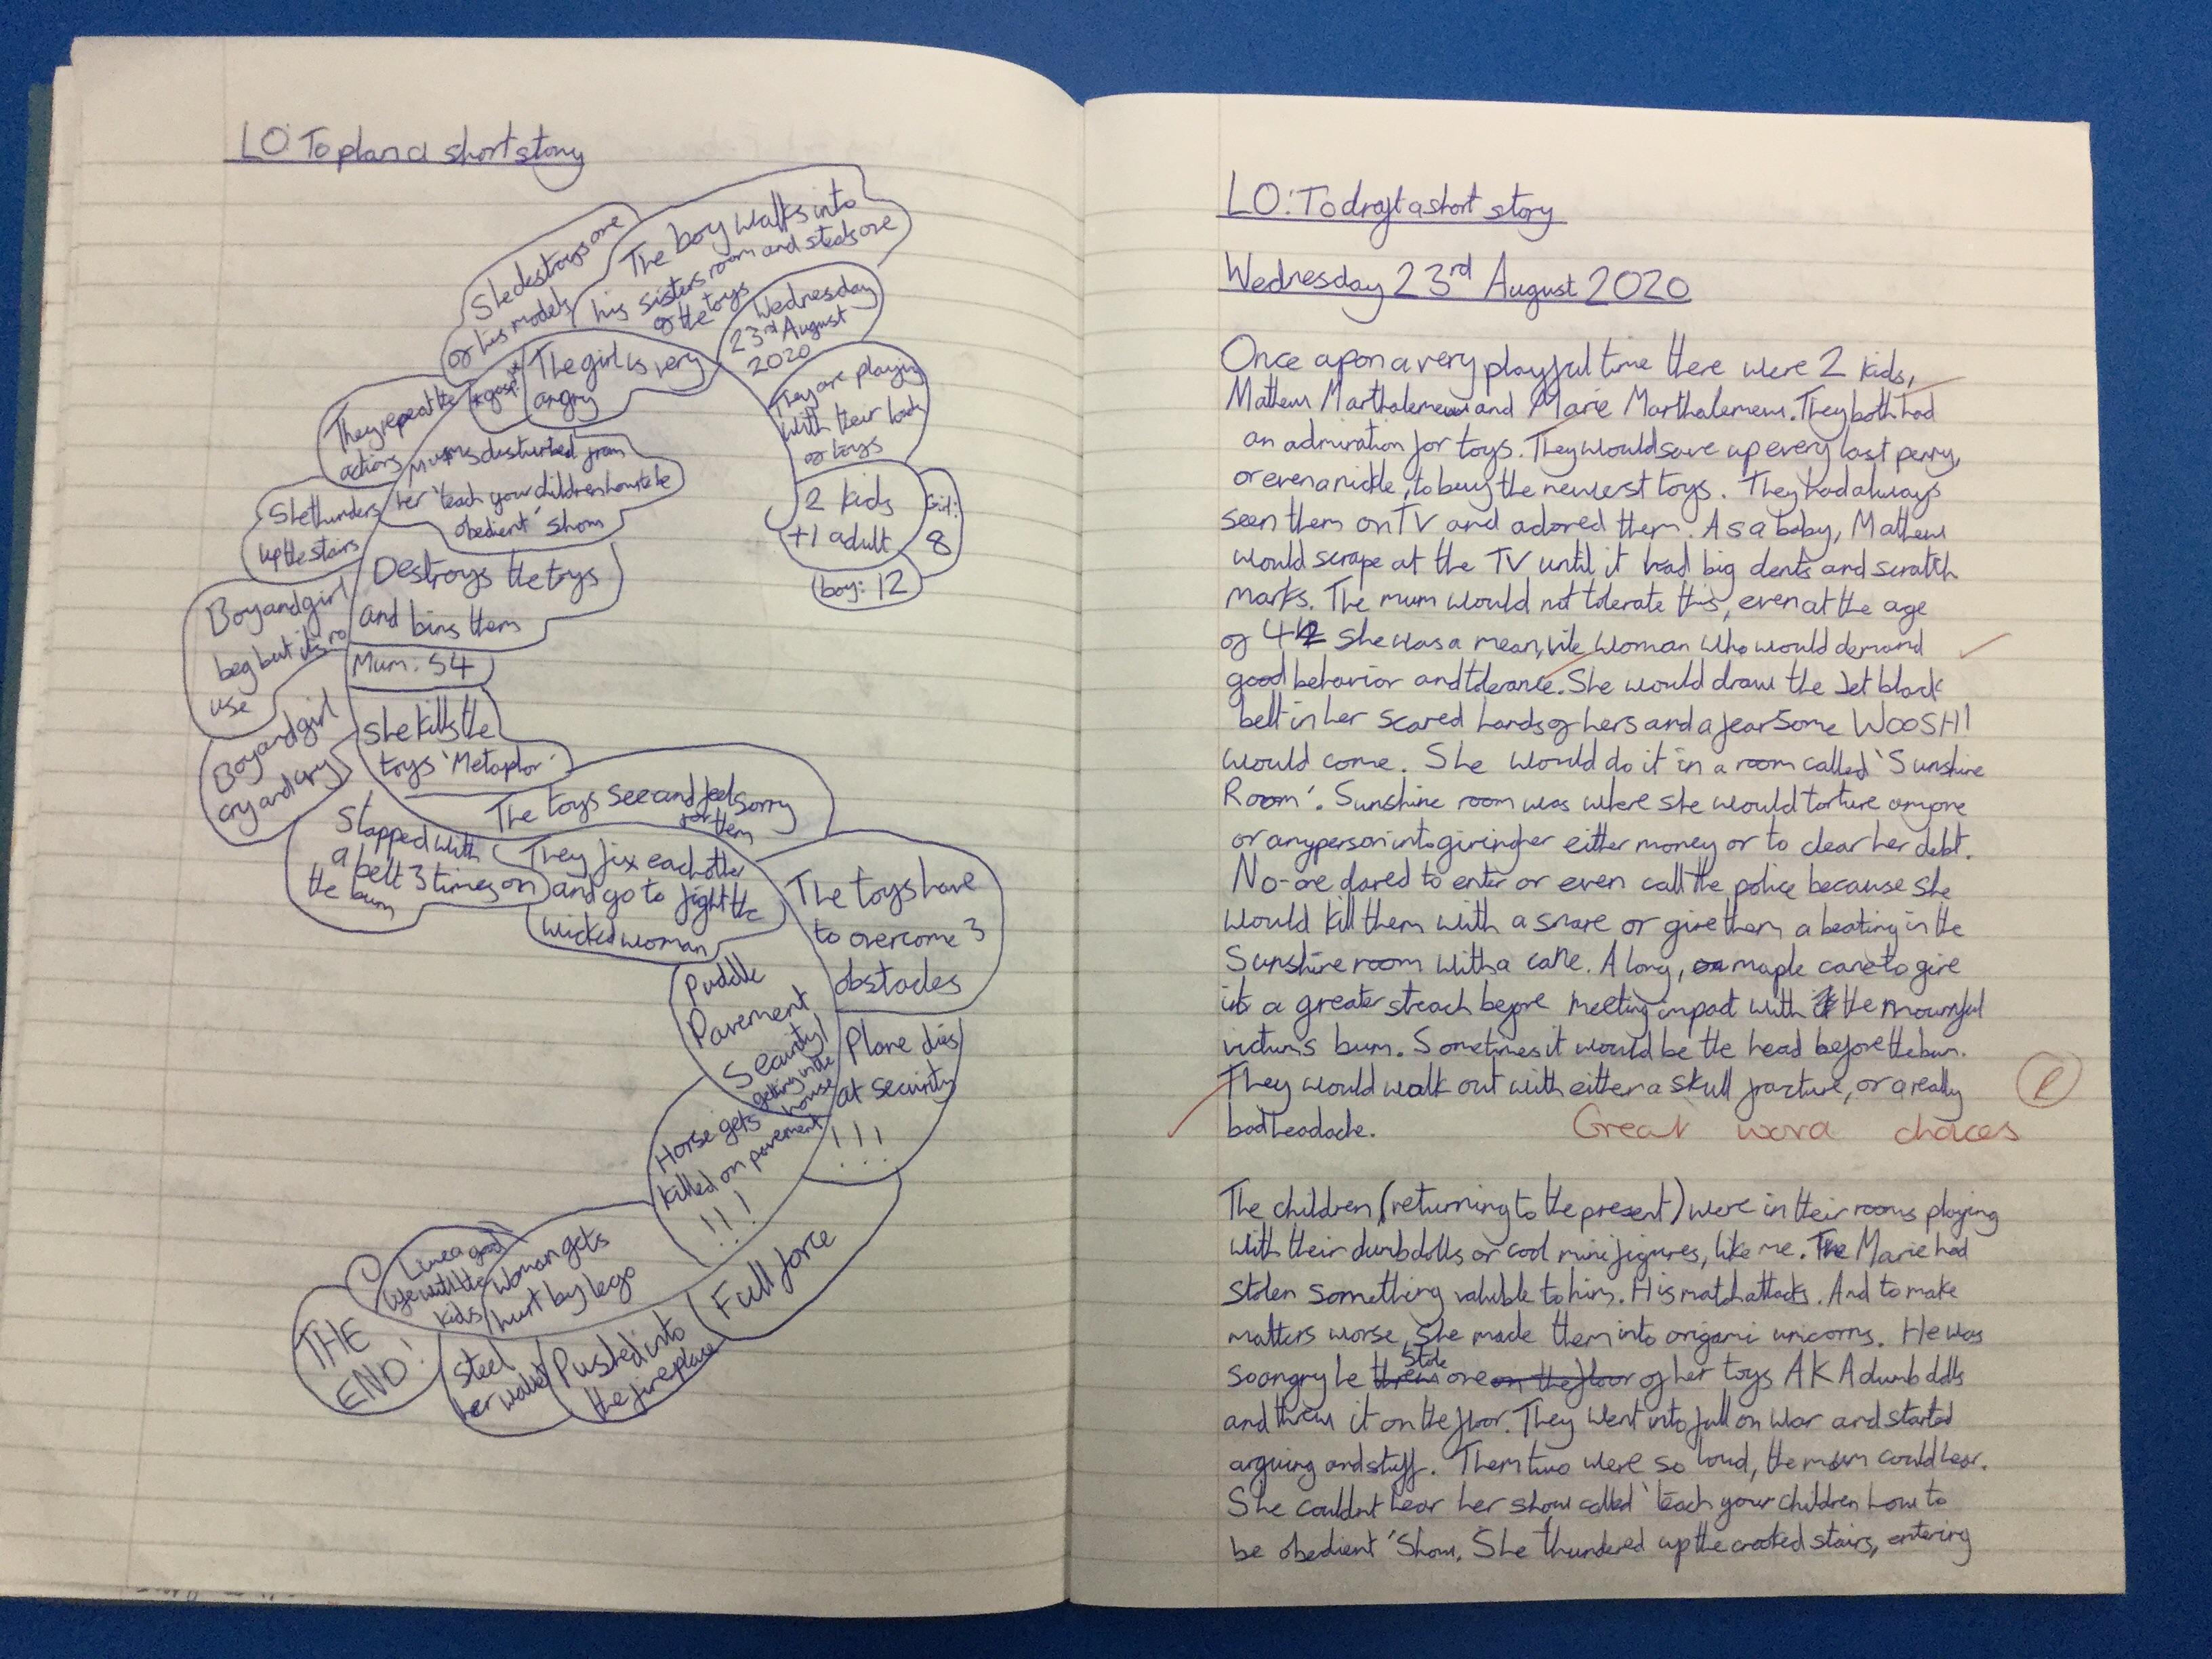 LO To plan a short story
She destroys one
of his models
The boy walks into
his sisters room and steals one
of the toys
Wednesday
23rd August
2020
They are playing
with their
of toys
2 kids
+1 adult
Girl:
8
boy: 12
The girl is very
angry
*gasp!*
They repeat the
actions
Mum is disturbed from
her 'teach your children how to be
obedient' show
She thunders
up the stairs
Destroys the toys
and bins them
Boy and girl
beg but its no
use
Mum: 54
She kills the
toys 'Metaphor'
Boy and girl
cry and cry
The toys see and feel sorry
for them
Slapped with
a belt 3 times on
the bum
They fix each other
and go to fight the
wicked woman
The toys have
to overcome 3
obstacles
Puddle
Pavement
Security/
getting in the
house
Plane dies
at security
!!!
Horse gets
killed on pavement
!!!
Full force
Pushed into
the fireplace
Woman gets
hurt by lego
Steel
her wallet
Live a good
life with the
kids
THE
END!
LO: To draft a short story
Wednesday 23rd August 2020
Once apon a very playful time there were 2 kids,
Mathew Marthalemew and Marie Marthalemew. They both had
an admiration for toys. They would save up every last penny,
or even a nickle, to buy the newest toys. They had always
seen them on TV and adored them. As a baby, Mathew
would scrape at the TV until it had big dents and scratch
marks. The mum would not tolerate this, even at the age
of 42 she was a mean, vile woman who would demand
good behavior and tolerance. She would draw the Jet black
belt in her scared hands of hers and a fearsome WOOSH!
would come. She would do it in a room called 'Sunshine
Room'. Sunshine room was where she would torture anyone
or any person into giving her either money or to clear her debt.
No-one dared to enter or even call the police because she
would kill them with a snare or give them a beating in the
Sunshine room with a cane. A long, maple cane to give
it a greater streach before meeting impact with the mournful
victims bum. Sometimes it would be the head before the bum.
They would walk out with either a skull fracture, or a really
bad headache.
Great word choices
The children (returning to the present) were in their rooms playing
with their dumb dolls or cool mini figures, like me. Marie had
stolen something valuble to him. His match attacks. And to make
matters worse, she made them into origami unicorns. He was
so angry he threw stole one on the floor of her toys AKA dumb dolls
and threw it on the floor. They went into full on war and started
arguing and stuff. Them two were so loud, the mum could hear.
She couldnt hear her show called 'teach your children how to
be obedient' Show. She thundered up the crooked stairs, entering